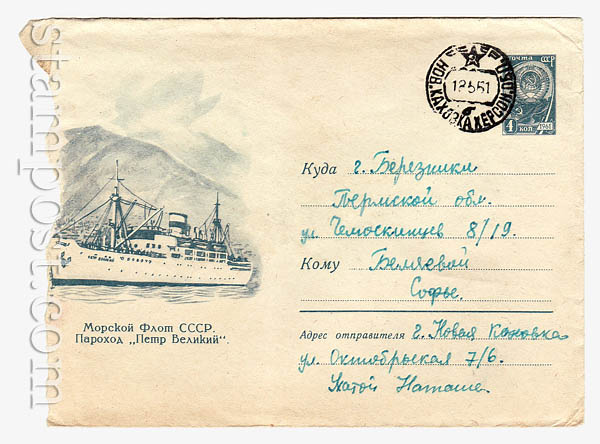 stamp-post.com
НОВ. КАХОВКА ХЕРСОН. ОБЛ
12 5 61
ПОЧТА СССР
4 КОП 1961
Куда г. Березники
Пермской обл.
ул. 8/19.
Кому Беляевой
Софье.
Морской Флот СССР.
Пароход „Петр Великий“.
Адрес отправителя г. Новая Каховка
ул. Октябрьская 7/6.
Наташе.